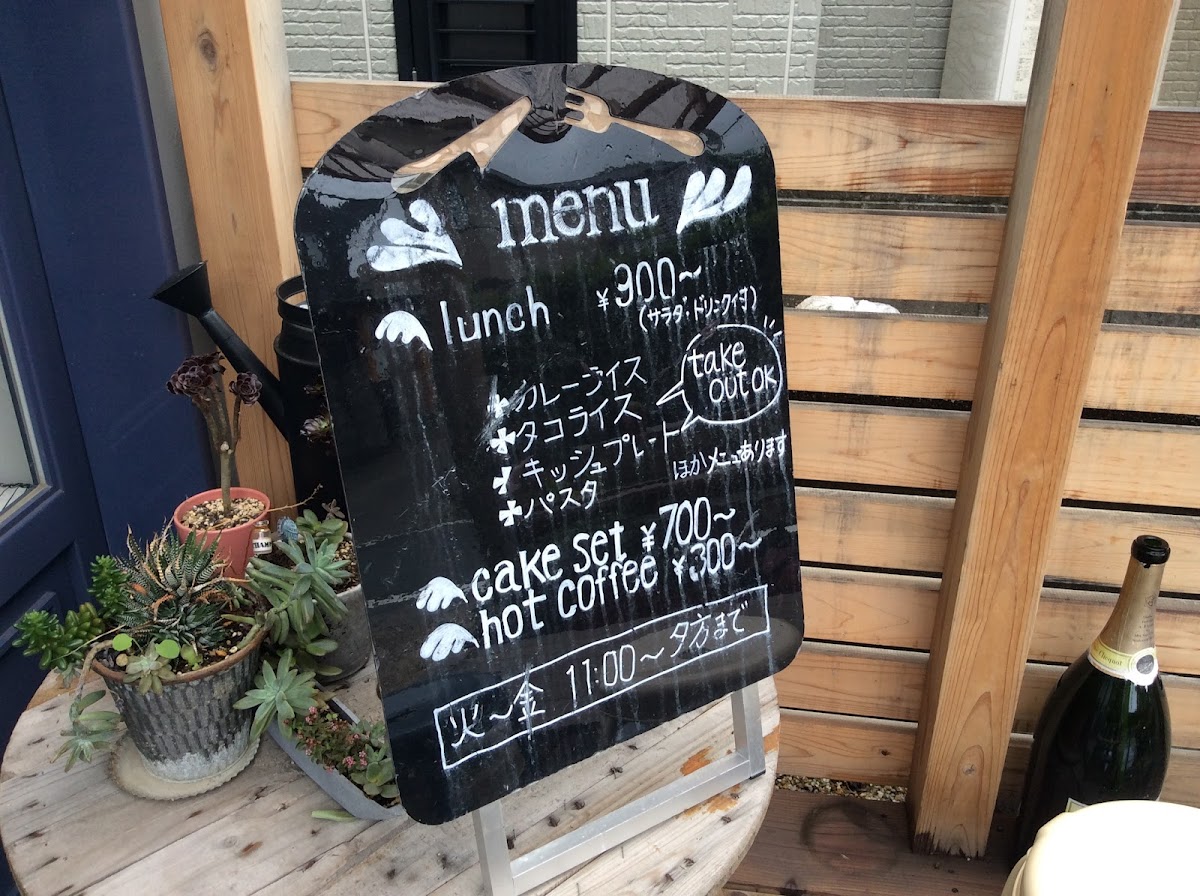 menu
lunch ¥900~
(サラダ・ドリンク付)
カレーライス
タコライス
キッシュプレート
パスタ
take
out OK
ほかメニューあります
cake set ¥700~
hot coffee ¥300~
火~金 11:00~夕方まで